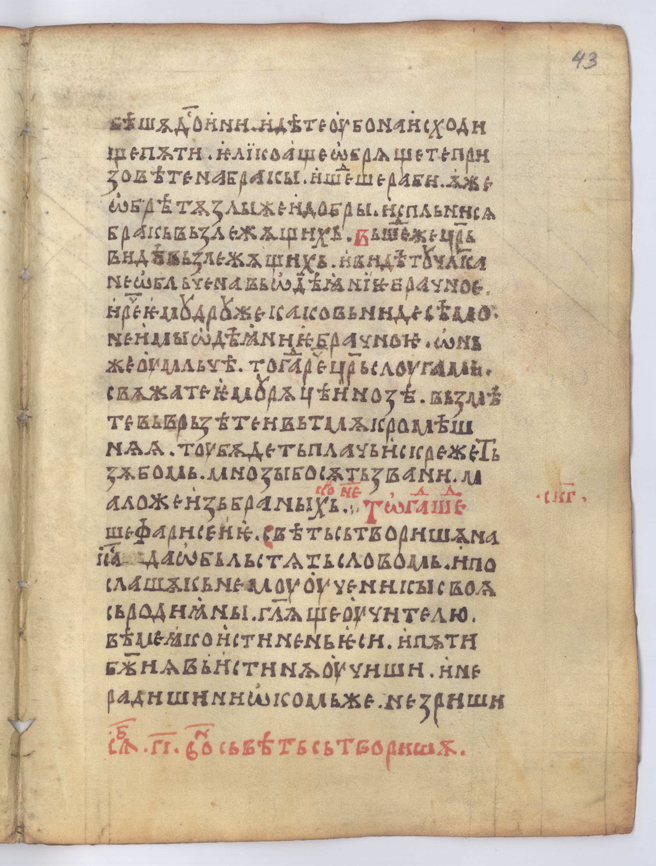 43
бѣшѧ дⷭ҇оини. идѣте оубо на исходи
ща пѫти. и еліко аще ѡбрѧщете при
зовѣте на бракы. ишⷣеше раби. ѧже
ѡбрѣтѧ злыже и добры. исплънисѧ
бракь вьзлежѧщихь. Вьшⷣеже цр҃ь
видⷣѣ вьзлежѧщихь. и видѣ тоу чл҃ка
не ѡбльчена вь ѡдѣꙗніе брачное.
и рⷱ҇е емоу дроуже како вьниде сѣмо.
не имы ѡдѣꙗниꙗ брачноꙗ. ѡнь
же оумльче. тогⷣа рⷱ҇е цр҃ь слоугамь.
свѧжате емоу рѫцѣ и нозѣ. вьзмѣ
те вьврьзѣте и вь тмѫ кромѣш
нѧѧ. тоу бѫдеть плачь и скрежеть
зѫбомь. мнозы бо сѫть звани. м
ало же изьбраныхь. Тѡгⷣа шⷣе
·скг·
ше фарисеие. свѣть сьтворишѧ на
іс҃а да ѡбльстѧть словомь. и по
слашѧ кь немоу оученикы своѧ
сь родиꙗны. гл҃ѧще оучителю.
вѣмь ꙗко истинень еси. и пѫти
бж҃иꙗ вь истинѫ оучиши. и не
радиши ни ѡ комьже. не зриши
сѫⷠ. гі. вⷪⷩ сьвѣть сьтворишѧ.